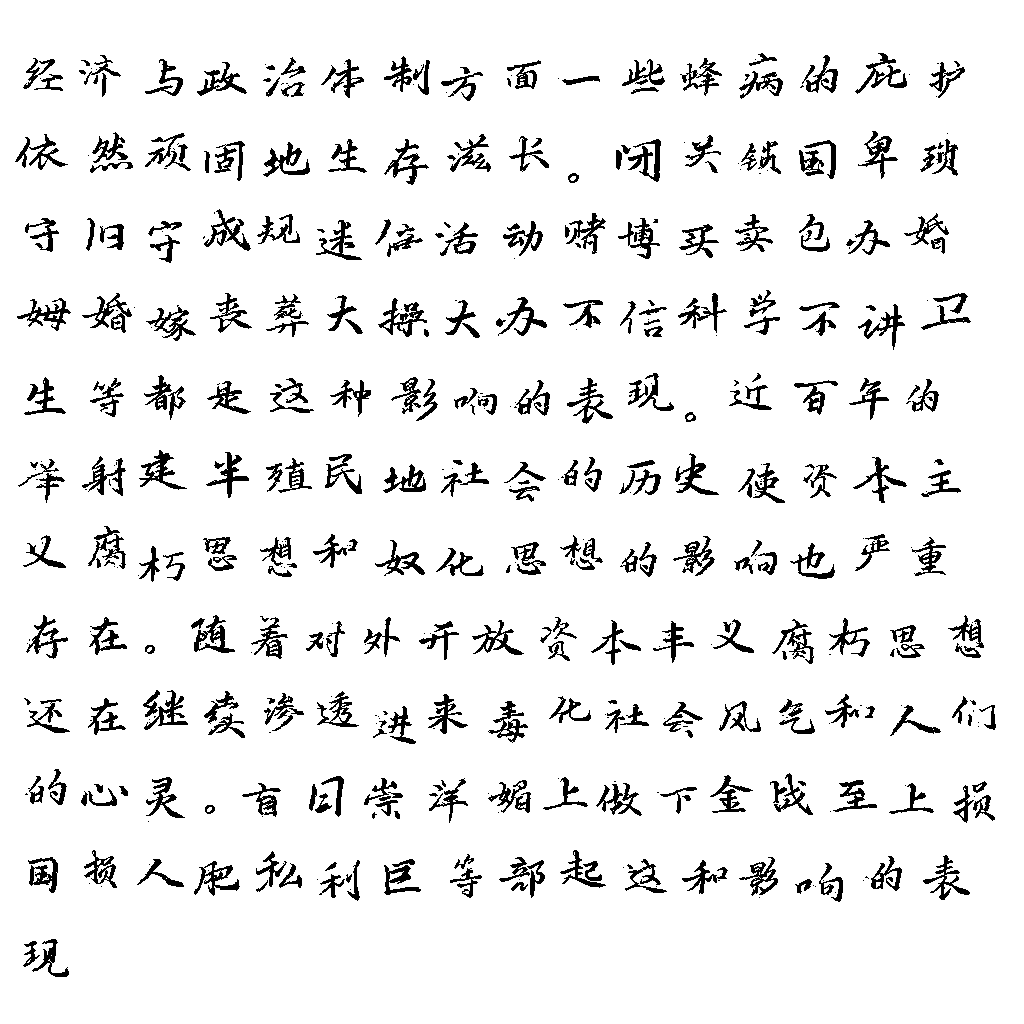 经济与政治体制方面一些蜂病的庇护
依然顽固地生存滋长。闭关锁国卑琐
守旧守成规迷倍活动赌博买卖包办婚
姆婚嫁丧葬大操大办不信科学不讲卫
生等都是这种影响的表现。近百年的
举射建半殖民地社会的历史使资本主
义腐朽思想和奴化思想的影响也严重
存在。随着对外开放资本丰义腐朽思想
还在继续渗透进来毒化社会风气和人们
的心灵。盲日崇洋媚上做下金战至上损
国损人肥私利巨等部起这和影响的表
现